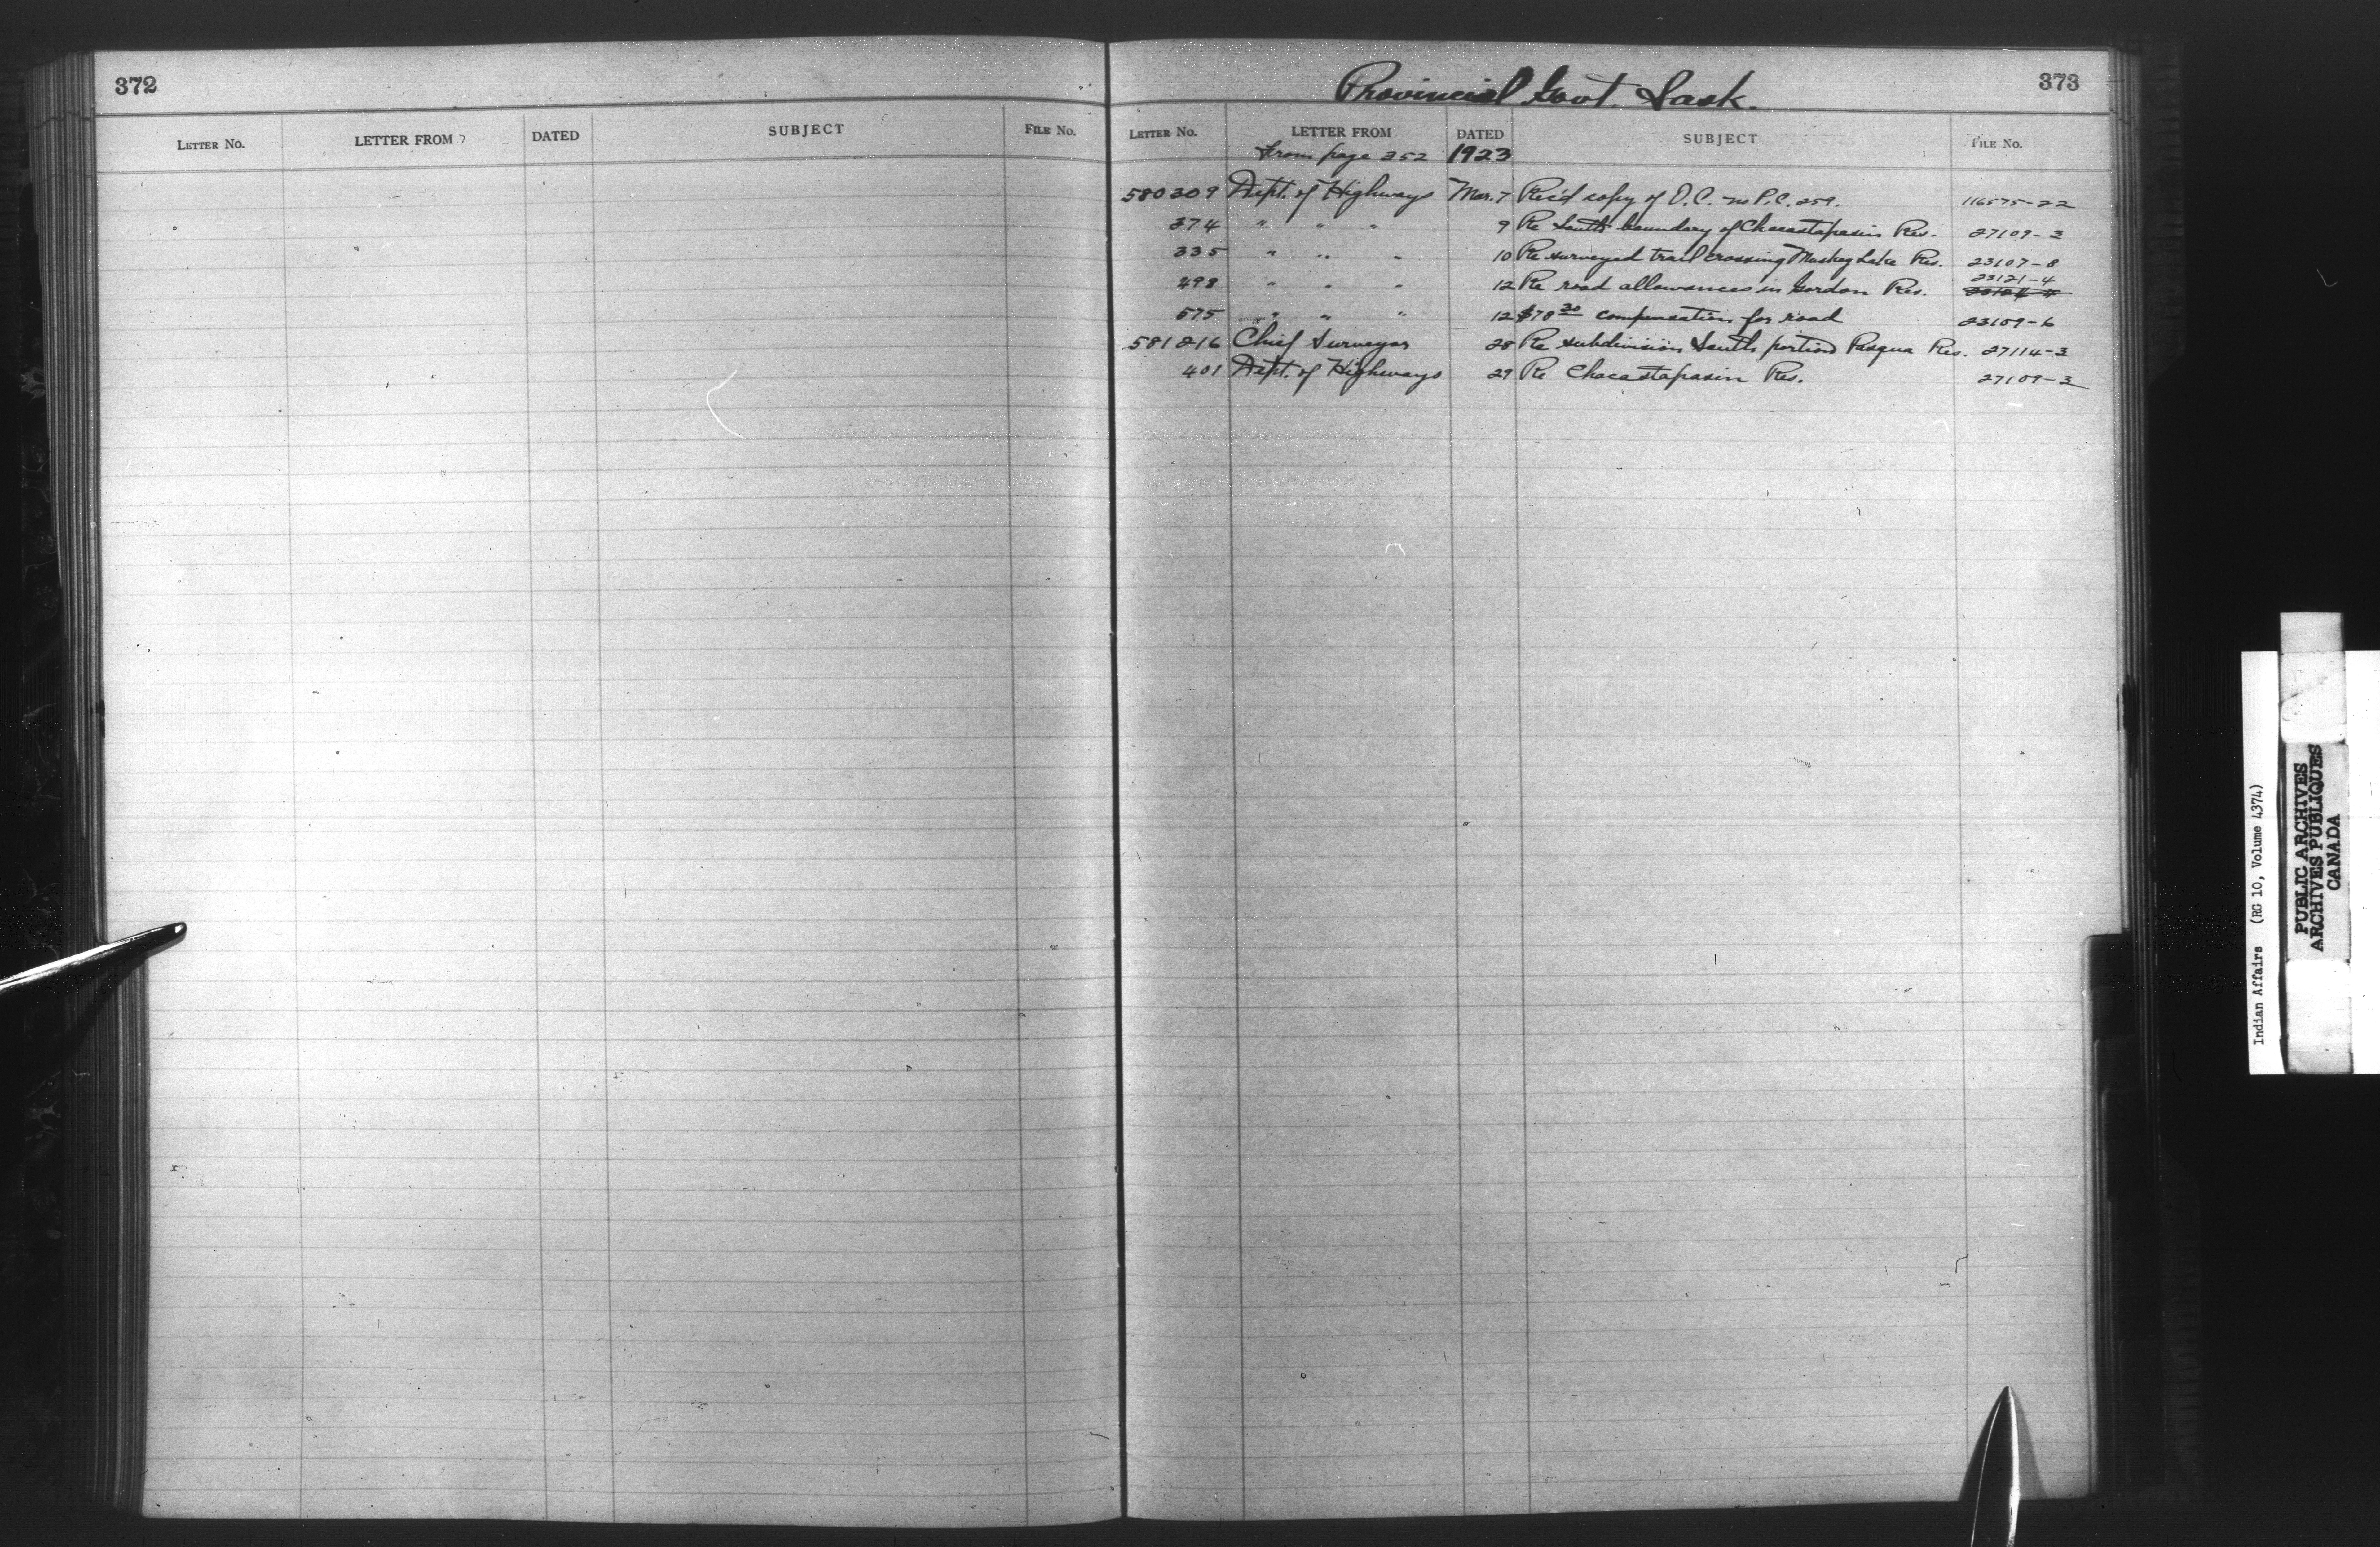 372
LETTER NO. LETTER FROM DATED SUBJECT FILE NO.
Provincial Govt. Sask.
373
LETTER NO. LETTER FROM DATED SUBJECT FILE NO.
From page 352 1923
580309 Dept. of Highways Mar. 7 Rec'd copy of O.C. no P.C. 259. 116575-22
374 " " " 9 Re South boundary of Chacastapasin Res. 27109-3
335 " " " 10 Re surveyed trail crossing Muskeg Lake Res. 23107-8
23121-4
498 " " " 12 Re road allowances in Gordon Res.
575 " " " 12 $78.30 compensation for road 23109-6
581216 Chief Surveyor 28 Re subdivision South portion Pasqua Res. 27114-3
401 Dept. of Highways 29 Re Chacastapasin Res. 27109-3
Indian Affairs (RG 10, Volume 4374)
PUBLIC ARCHIVES
ARCHIVES PUBLIQUES
CANADA